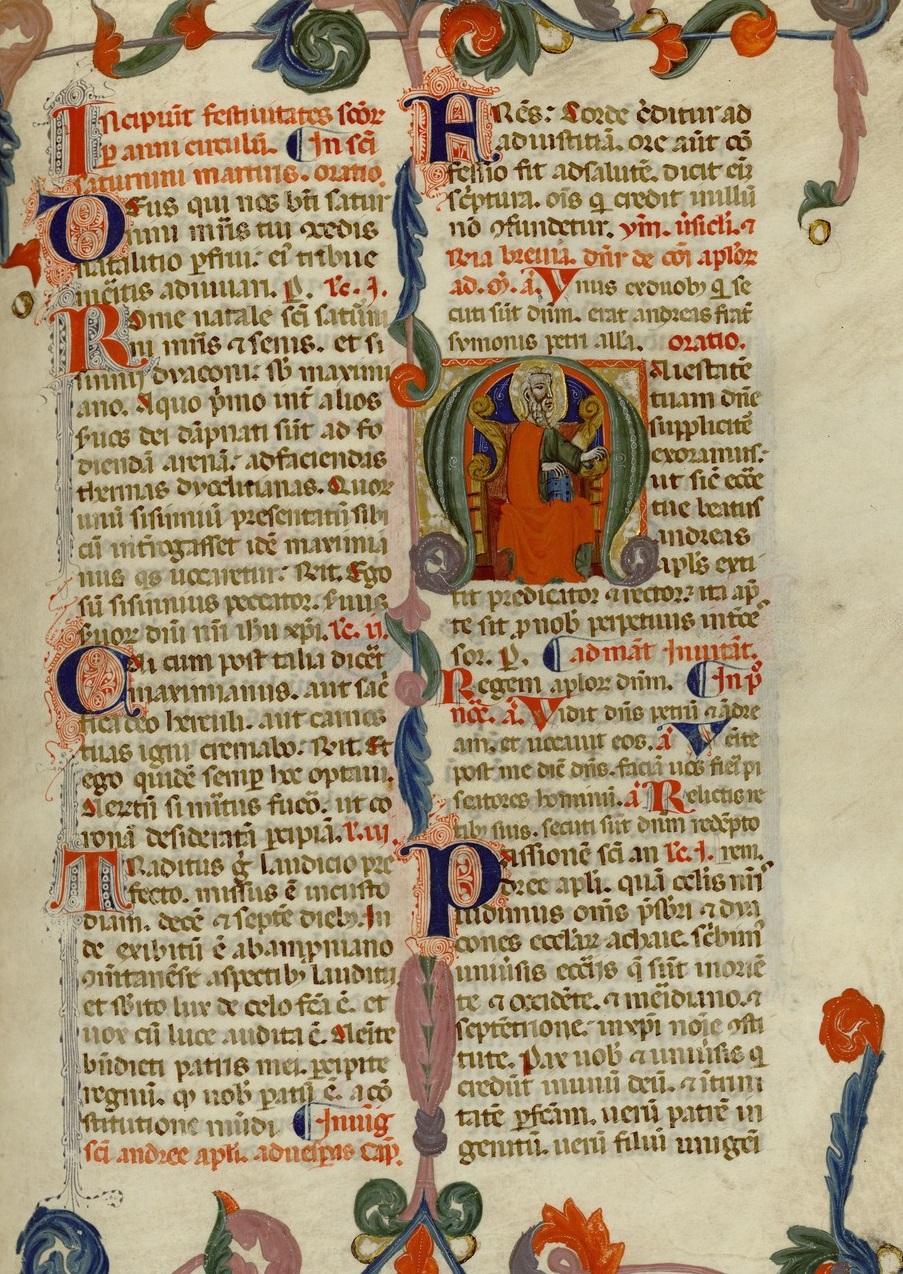 Incipiūt festiuitates sc̄or
p anni circulū. In sc̄i
saturnini martiris. oratio.
Deus qui nos bt̄i satur
nini mr̄is tui ꝯcedis
natalitio ꝑfrui: eiꝰ tribue
meritis adiuuari. P. lc. I.
Rome natale sc̄i saturni
ni mr̄is ⁊ senis. et si
sinnij dyaconi: sb̄ maximi
ano. Aquo pͥmo int̄ alios
suos dei dāpnati sūt ad fo
diendā arenā: adfaciendas
thermas dyoclitianas. Quor
unū sisinniū presentatū sibi
cū int̄rogasset idē maximia
nus qs uocaretur: Rn̄t. Ego
sū sisinnius peccator. seruus
seruor dn̄i nr̄i ihū xp̄i. lc. II.
Cui cum post talia dicēt
maximianus. aut sac̄
fica deo herculi. aut carnes
tuas igni cremabo. Rn̄t. Et
ego quidē semp hoc optaui.
Aceptū si mr̄itus fueō. ut co
ronā desideratā ꝑcipiā. l. III.
Traditus g̊ laudicio pre
fecto. missus ē incusto
diam. decē ⁊ septē dieb⁊. In
de exibitū ē abampniano
et sb̄ito lux de celo fc̄a ē. et
uox cū luce audita ē. Uenite
bn̄dicti patris mei. ꝑcipite
regnū. qđ uob̄ patū ē. a cō
stitutione mūdi. Inuig
sc̄i andree apl̄i. aduesp̄as cap̄.
R̄es: Corde c̄ditur ad
adiustitiā. ore aūt cō
fessio fit adsalutē. dicit eī
sc̄ptura. oīs q̄ credit inillū
nō ꝯfundetur. ym. ūsicl̄. ⁊
ad. ā. Vnus exduob⁊ q̄ se
cuti sūt dn̄m. erat andreas frat̄
symonis petri all̄a. oratio.
Maiestatē
tuam dn̄e
supplicitē
exoramus:
ut sic̄ ecc̄e
tue beatus
andreas
apl̄s exti
tit predicator ⁊ rector: ita ap̄
te sit ꝑ nob̄ perpetuus intc̄e
sor. P. ad mat̄ Inuitat̄.
Regem aplor dn̄m. In pͥ
no͞c. ā. Vidit dn̄s petrū ⁊ ādre
am. et uocauit eos. ā Venite
post me dic̄ dn̄s. faciā uos fieri pi
scatores hominū. ā Relictis re
tib⁊ suis. secuti sūt dn̄m redēpto
Passionē sc̄i an lc. I. rem.
dree apl̄i. quā oc̄lis nr̄i
uidimus om̄s p̄sbr̄i ⁊ dya
cones eccl̄ar achaie. sc̄bim
uniūsis eccl̄is q̄ sūt inoriē
te ⁊ occidēte. ⁊ mēidiano. ⁊
septētrione. inxp̄i noīe ꝯsti
tute. Pax uob̄ ⁊ uniūsis q̄
credūt inunū deū. ⁊ ītrini
tatē ꝑfc̄am. uerū patrē in
genitū. uerū filiū unigen̄